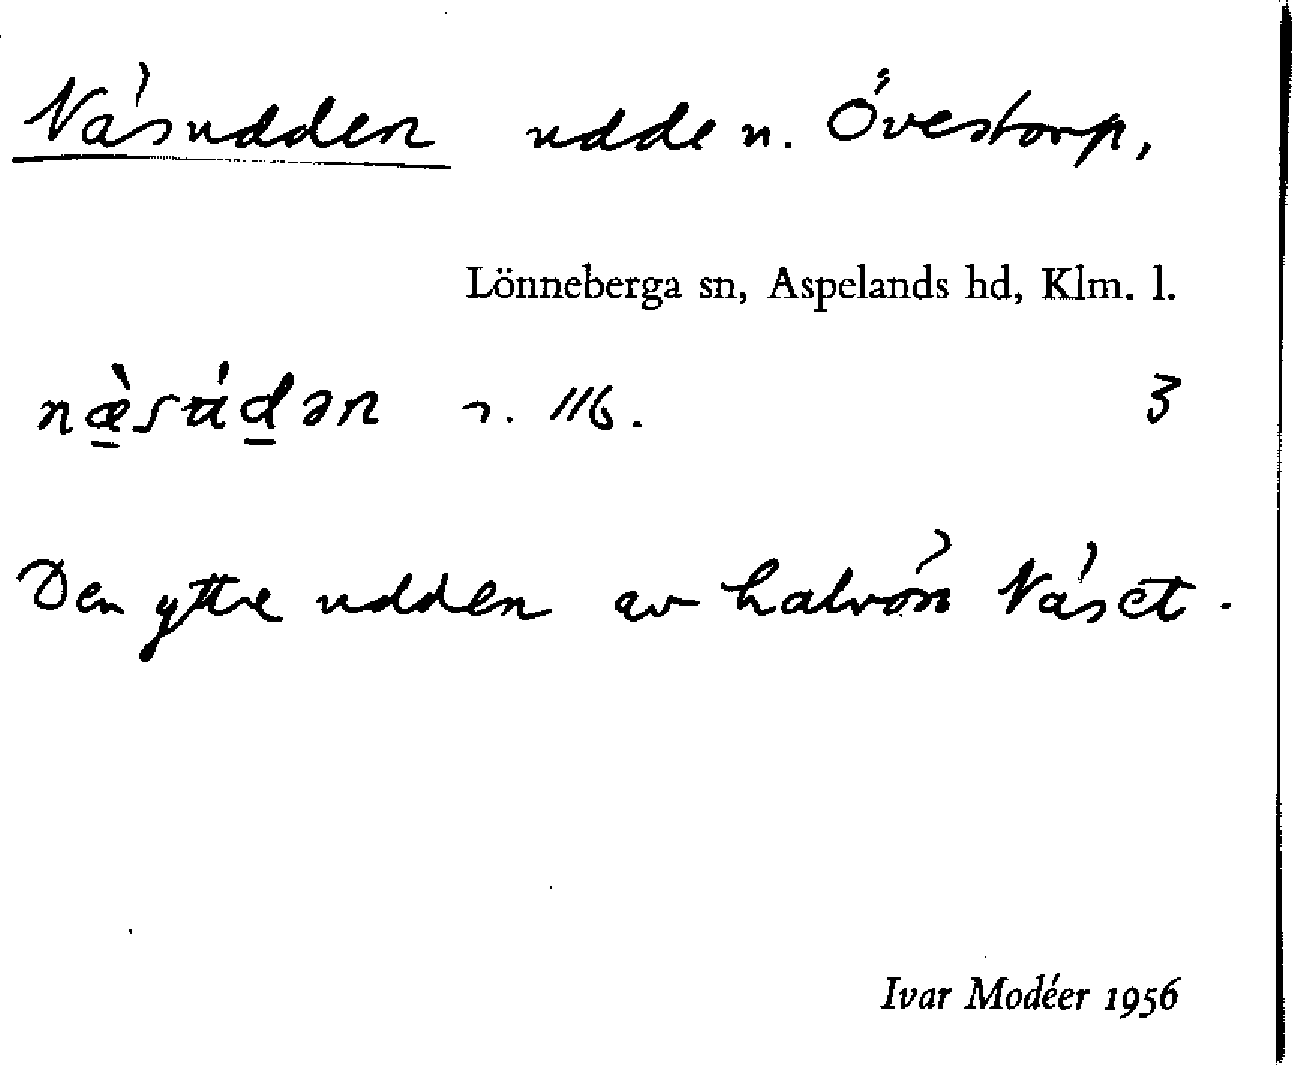 Näsudden udde n. Övestorp,
Lönneberga sn, Aspelands hd, Klm. l.
næ̀su̇́dən 3
Den yttre udden av halvön Näset.
Ivar Modéer 1956